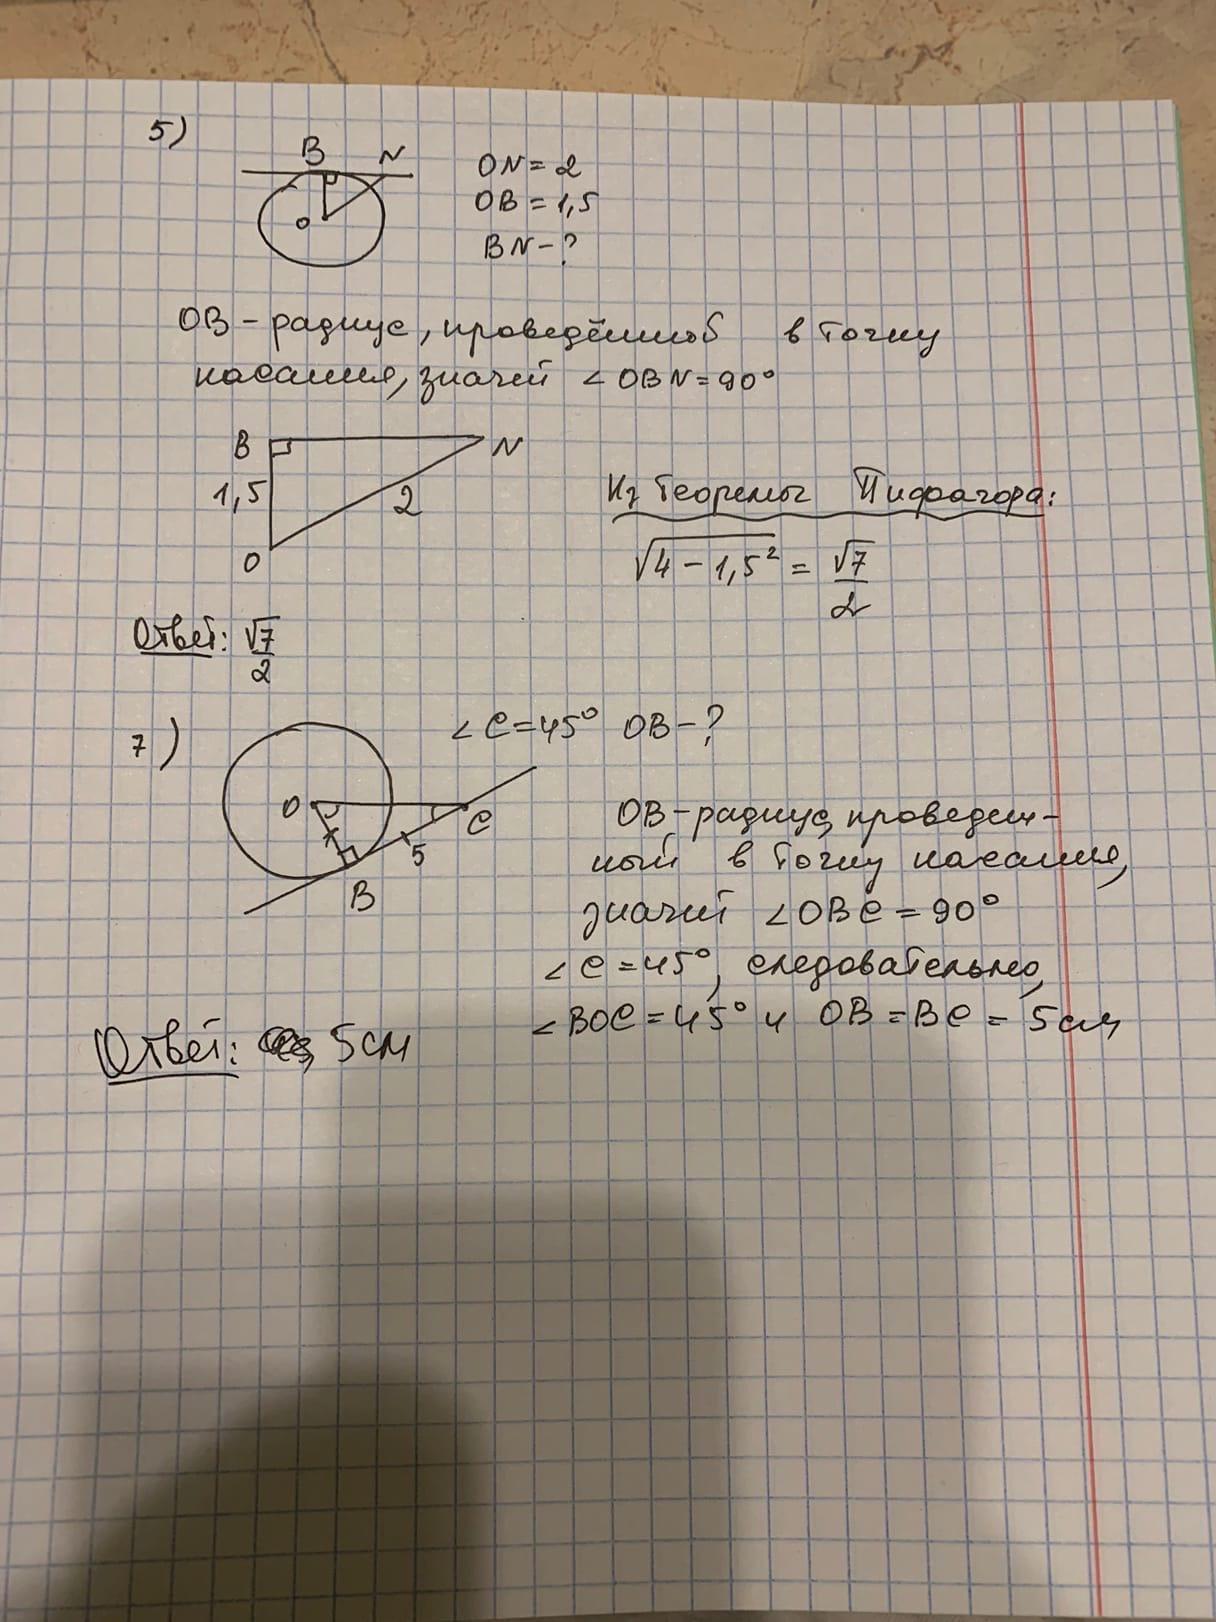 5)
B N
O
ON = 2
OB = 1,5
BN - ?
OB - радиус, проведённый в точку
касания, значит ∠OBN = 90°
B N
1,5
2
O
Из теоремы Пифагора:
√4 - 1,5² = √7/2
Ответ: √7/2
7)
∠C = 45° OB - ?
O
C
5
B
OB - радиус, проведен-
ный в точку касания,
значит ∠OBC = 90°
∠C = 45°, следовательно,
∠BOC = 45° и OB = BC = 5 см
Ответ: 5 см